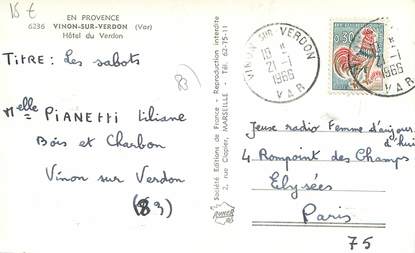 15 €
EN PROVENCE
6236 - VINON-SUR-VERDON (Var)
Hôtel du Verdon
Titre: Les sabots
83)
Melle PIANETTI Liliane
Bois et Charbon
Vinon sur Verdon
(83)
Société Editions de France - Reproduction interdite
2, rue Clapier, MARSEILLE - Tél. 62-75-11
VINON SUR VERDON
21-1
1966
VAR
0,30
Jeuse radio Femme d'aujour
d'hui
4 Rompoint des Champs
Elysées
Paris
75